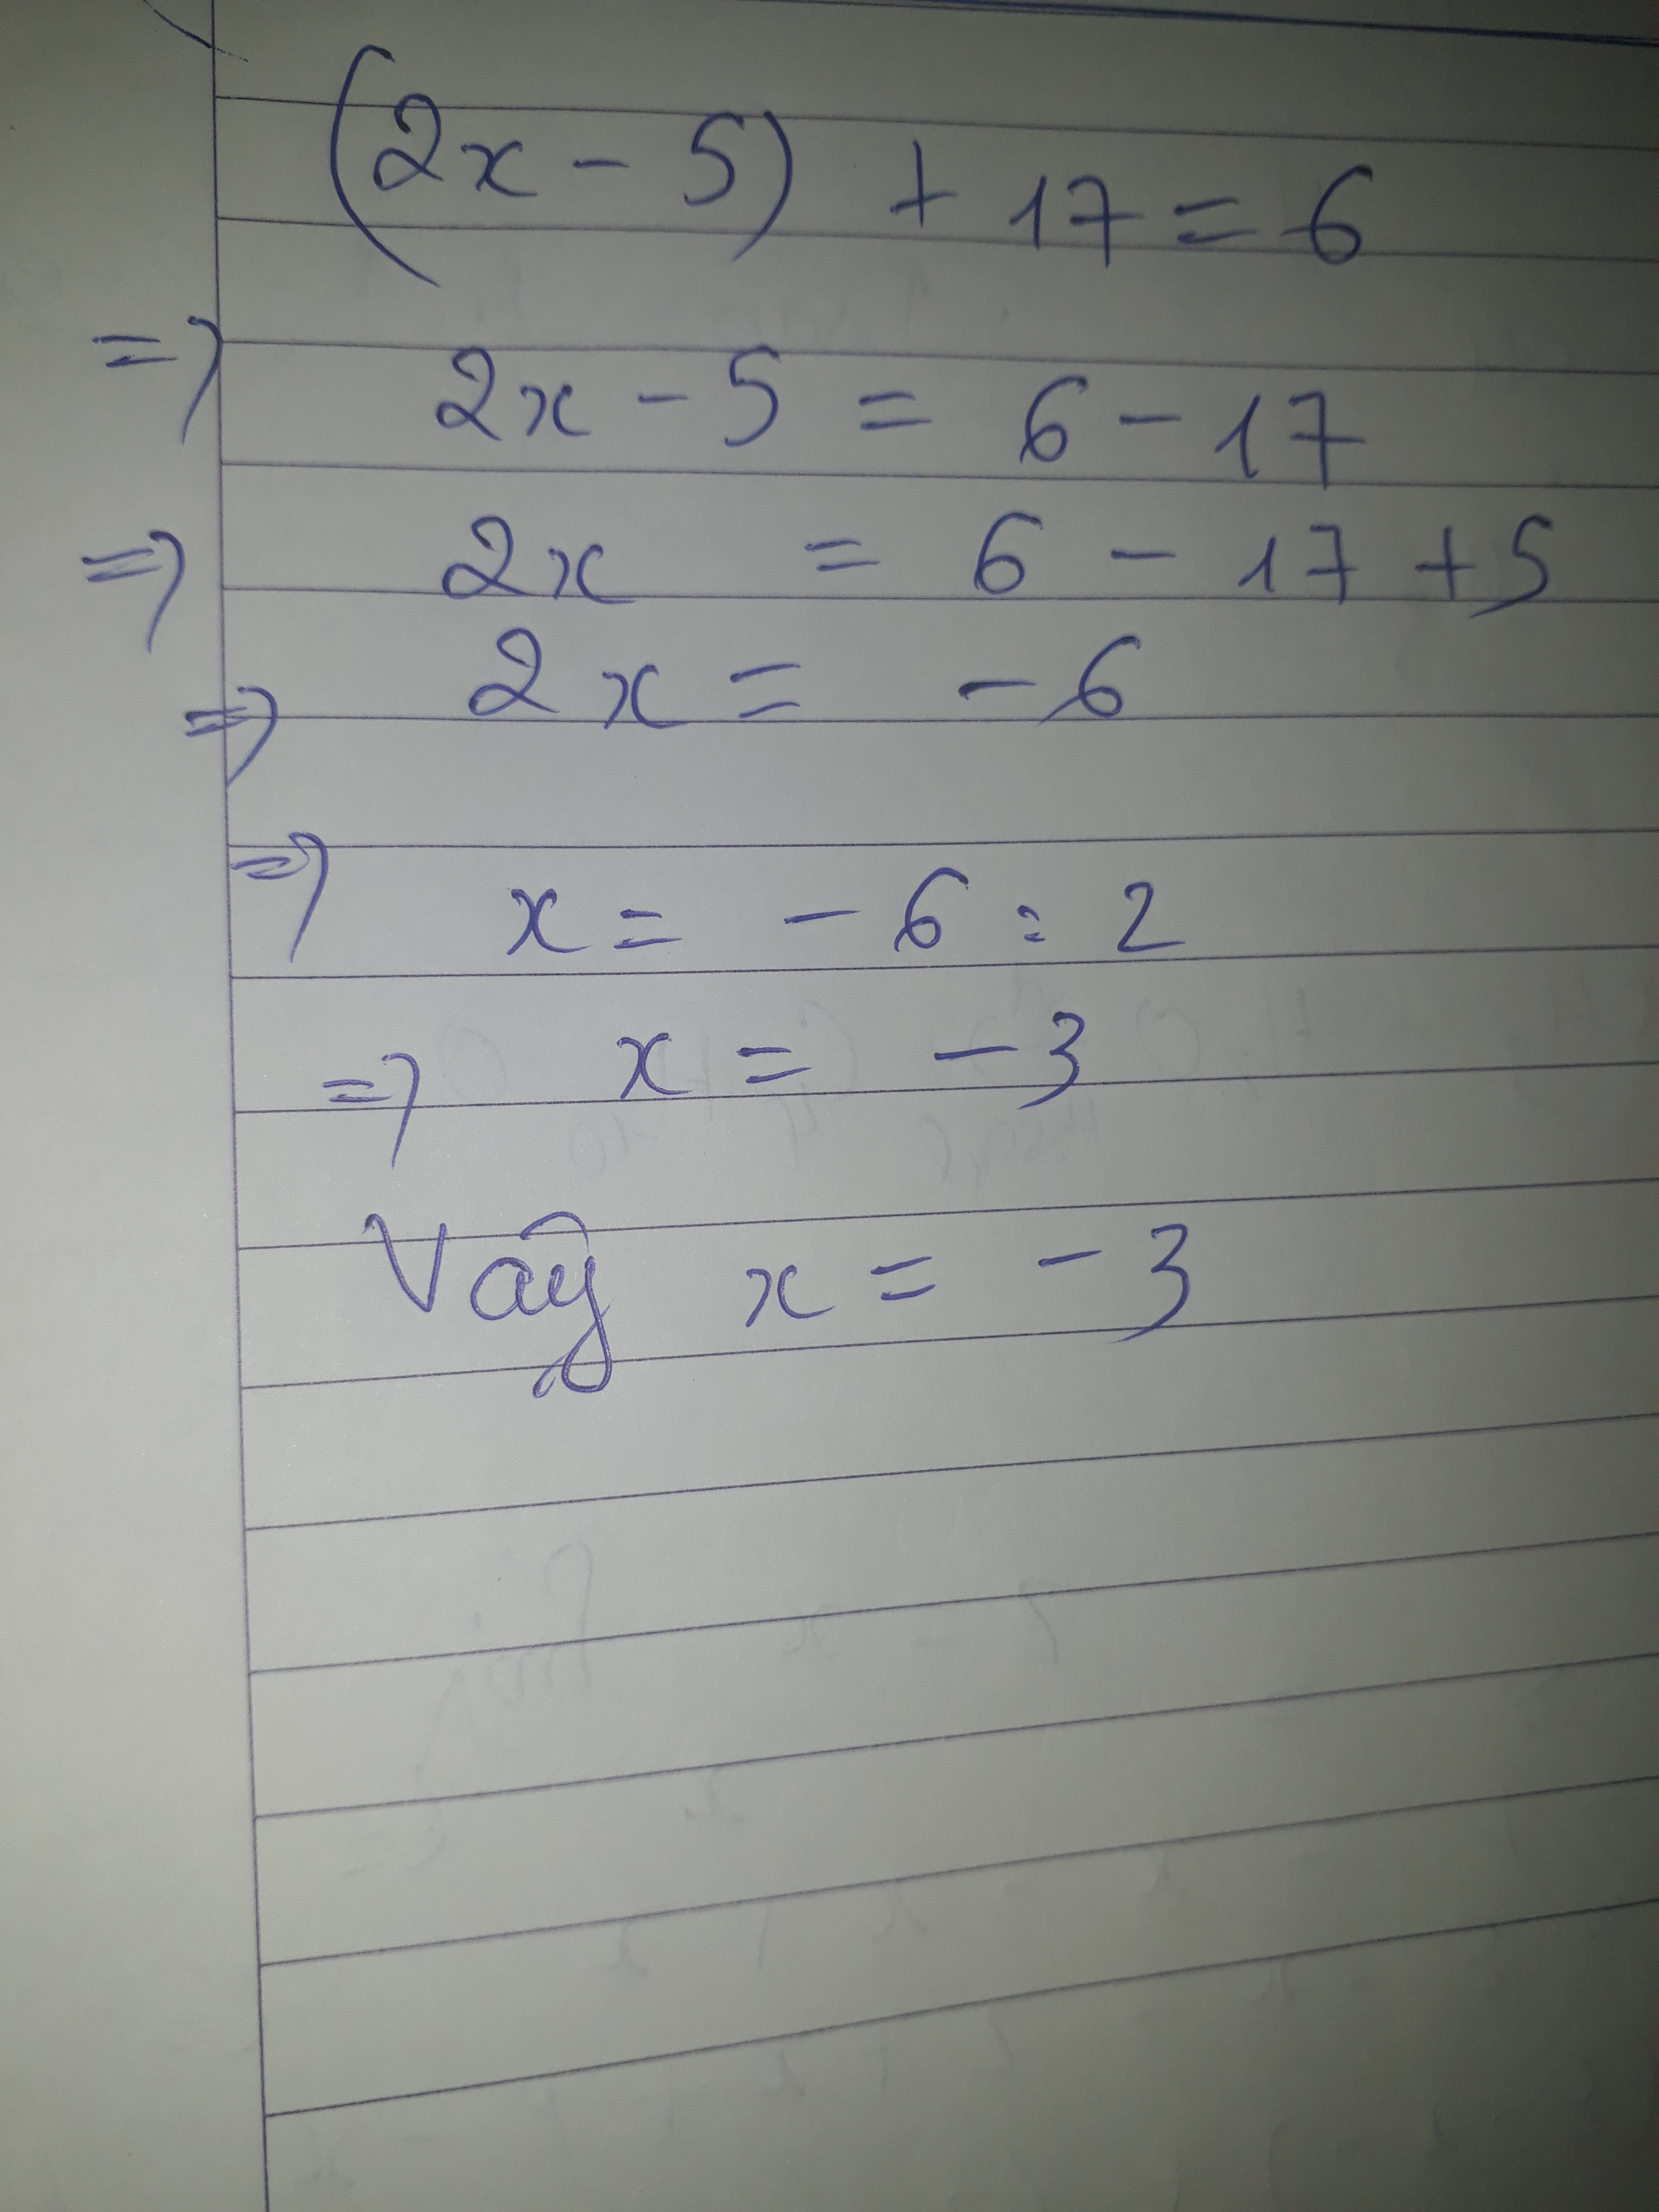 (2x - 5) + 17 = 6
=> 2x - 5 = 6 - 17
=> 2x = 6 - 17 + 5
=> 2x = - 6
=> x = - 6 : 2
=> x = - 3
Vậy x = - 3